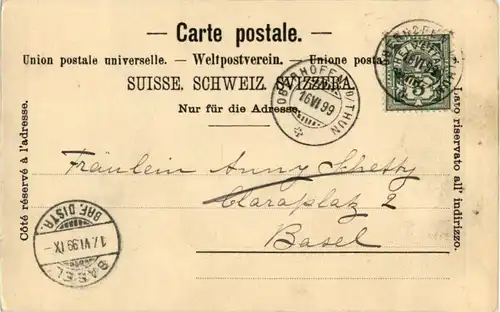 — Carte postale. —
Union postale universelle. — Weltpostverein. — Unione postale
SUISSE. SCHWEIZ. SVIZZERA.
Nur für die Adresse.
Côté réservé à l'adresse.
Lato riservato all' indirizzo.
HELVETIA
5
OBERHOFEN B/THUN
16 VI 99
Fräulein Anny Schetty
Claraplatz 2
Basel
BRF. DISTR.
17. VI. 99 IX -
BASEL